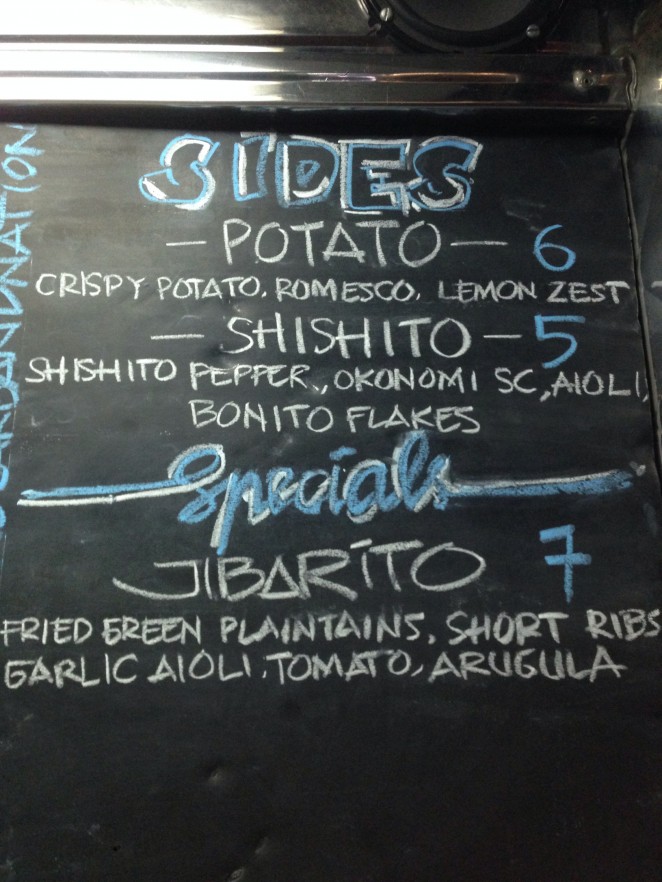 SIDES
- POTATO - 6
CRISPY POTATO, ROMESCO, LEMON ZEST
- SHISHITO - 5
SHISHITO PEPPER, OKONOMI SC, AIOLI,
BONITO FLAKES
Specials
JIBARITO 7
FRIED GREEN PLAINTAINS, SHORT RIBS
GARLIC AIOLI, TOMATO, ARUGULA